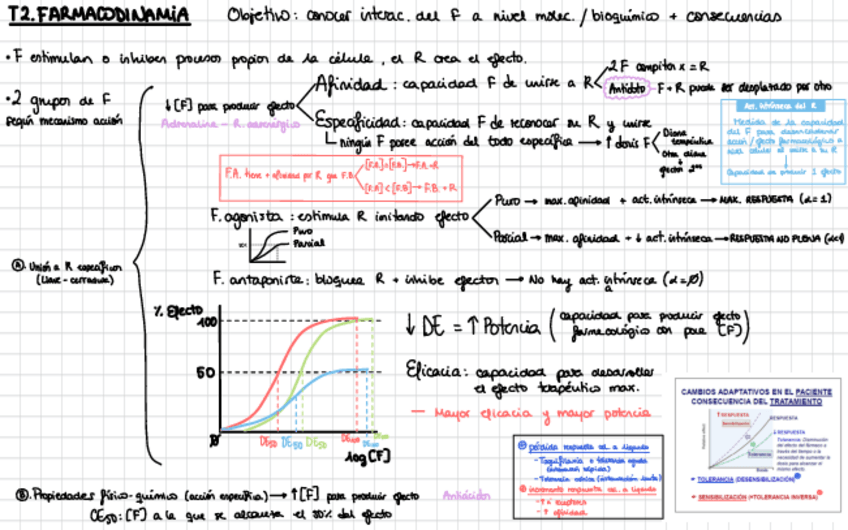 T2. FARMACODINAMIA
Objetivo: conocer interac. del F a nivel molec. / bioquímico + consecuencias
· F estimulan o inhiben procesos propios de la célula, el R crea el efecto.
· 2 grupos de F
según mecanismo acción
↓[F] para producir efecto
Adrenalina - R.
Afinidad: capacidad F de unirse a R
2 F compiten x = R
Antídoto - F + R puede ser desplazado por otro
Especificidad: capacidad F de reconocer su R y unirse
ningún F posee acción del todo específica → ↑ dosis F
Diana terapéutica
Otra diana
Act. intrínseca del R
Medida de la capacidad
del F para desencadenar
acción / efecto farmacológico a
nivel celular al unirse a su R
Capacidad de producir 1 efecto
F.A. tiene + afinidad por R que F.B.
F. agonista: estimula R imitando efecto
Puro → max. afinidad + act. intrínseca → MAX. RESPUESTA (α=1)
Parcial → max. afinidad + ↓ act. intrínseca → RESPUESTA NO PLENA
Puro
Parcial
Ⓐ. Unión a R específicos
(Llave - cerradura)
F. antagonista: bloquea R + inhibe efector → No hay act. intrínseca (α=Ø)
% Efecto
100
50
DE50 DE50 DE50
log [F]
↓ DE = ↑ Potencia (capacidad para producir efecto
farmacológico con poca [F])
Eficacia: capacidad para desarrollar
el efecto terapéutico max.
— Mayor eficacia y mayor potencia
pérdida respuesta cel. a ligando
- Taquifilaxia o tolerancia aguda
(instauración rápida)
- Tolerancia crónica (instauración lenta)
incremento respuesta cel. a ligando
- ↑ afinidad
CAMBIOS ADAPTATIVOS EN EL PACIENTE
CONSECUENCIA DEL TRATAMIENTO
↑ RESPUESTA
Sensibilización
RESPUESTA
↓ RESPUESTA
Tolerancia: Disminución
del efecto del fármaco a
través del tiempo o la
necesidad de aumentar la
dosis para alcanzar el
mismo efecto.
Tolerancia
TOLERANCIA (DESENSIBILIZACIÓN)
SENSIBILIZACIÓN (=TOLERANCIA INVERSA)
Ⓑ. Propiedades físico-química (acción específica) → ↑[F] para producir efecto
Antiácidos
CE50: [F] a la que se alcanza el 50% del efecto